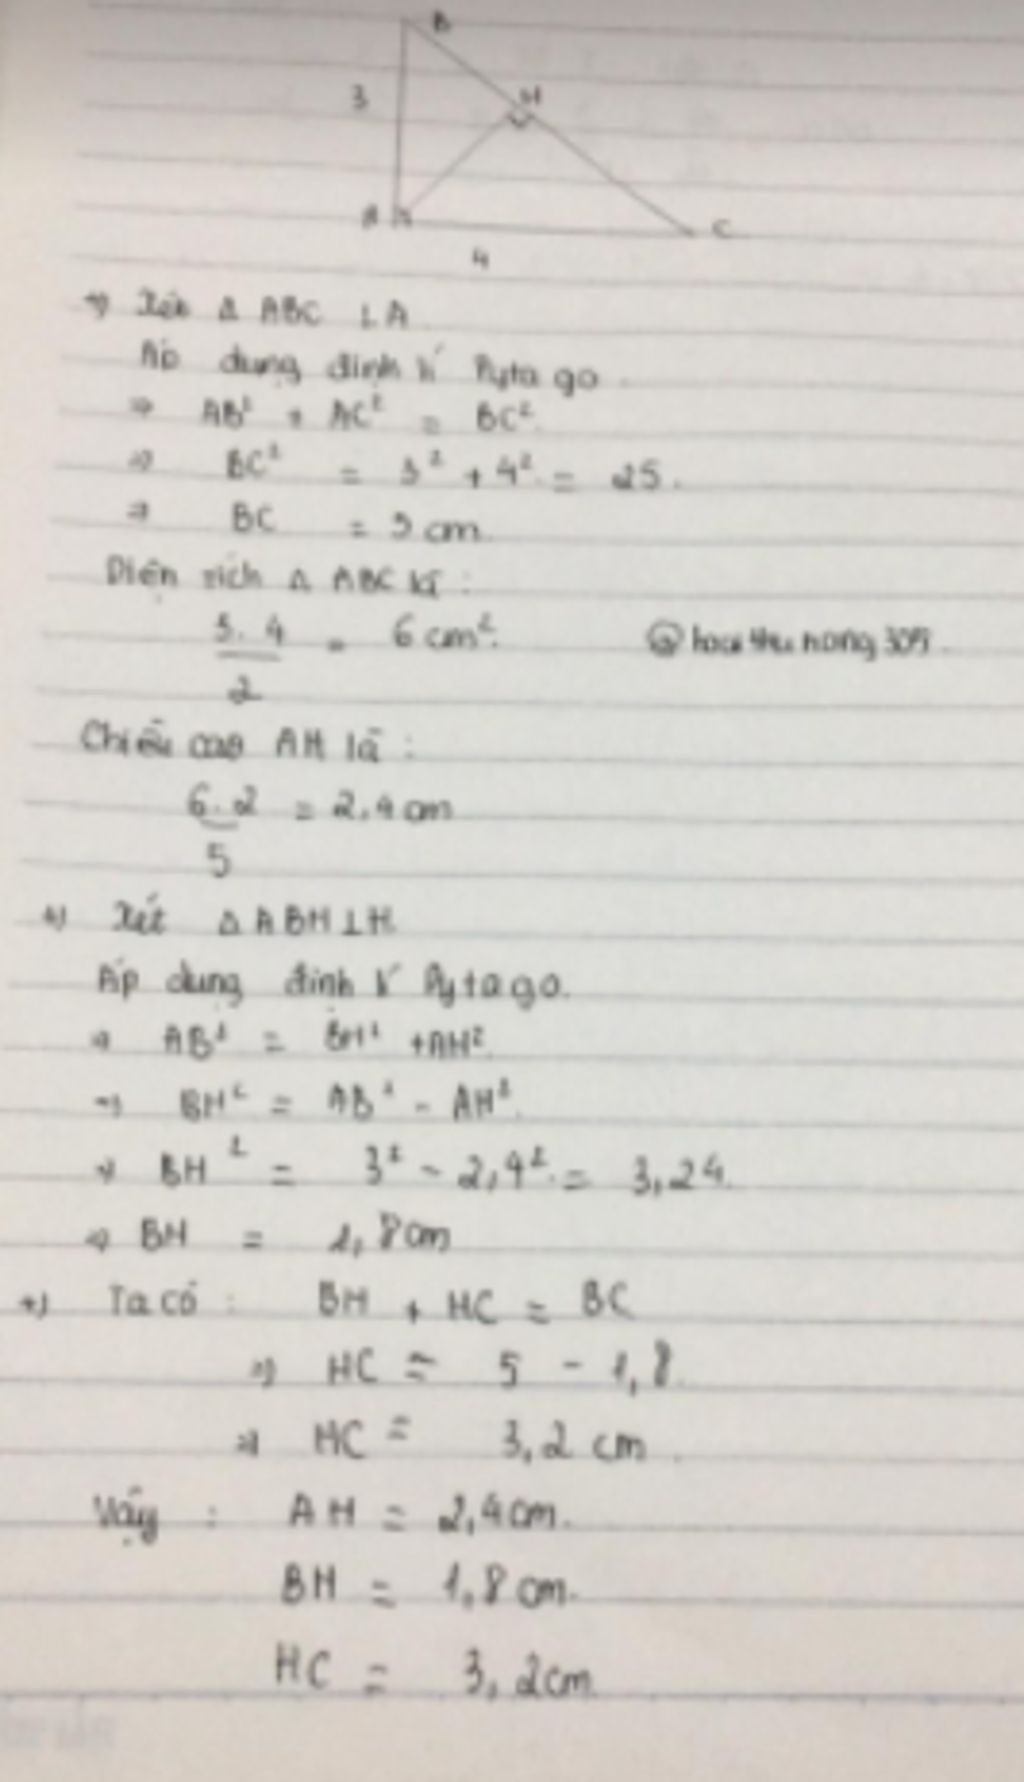 B
3
H
A
C
4
=> Xét Δ ABC ⊥ A
Áp dụng định lí Pytago.
=> AB² + AC² = BC².
=> BC² = 3² + 4² = 25.
=> BC = 5 cm.
Diện tích Δ ABC là :
3.4/2 = 6 cm².
Chiều cao AH là :
6.2/5 = 2,4 cm
+) Xét Δ ABH ⊥ H.
Áp dụng định lí Pytago.
=> AB² = BH² + AH².
=> BH² = AB² - AH².
=> BH² = 3² - 2,4² = 3,24.
=> BH = 1,8 cm
+) Ta có : BH + HC = BC
=> HC = 5 - 1,8.
=> HC = 3,2 cm.
Vậy : AH = 2,4 cm.
BH = 1,8 cm.
HC = 3,2 cm.